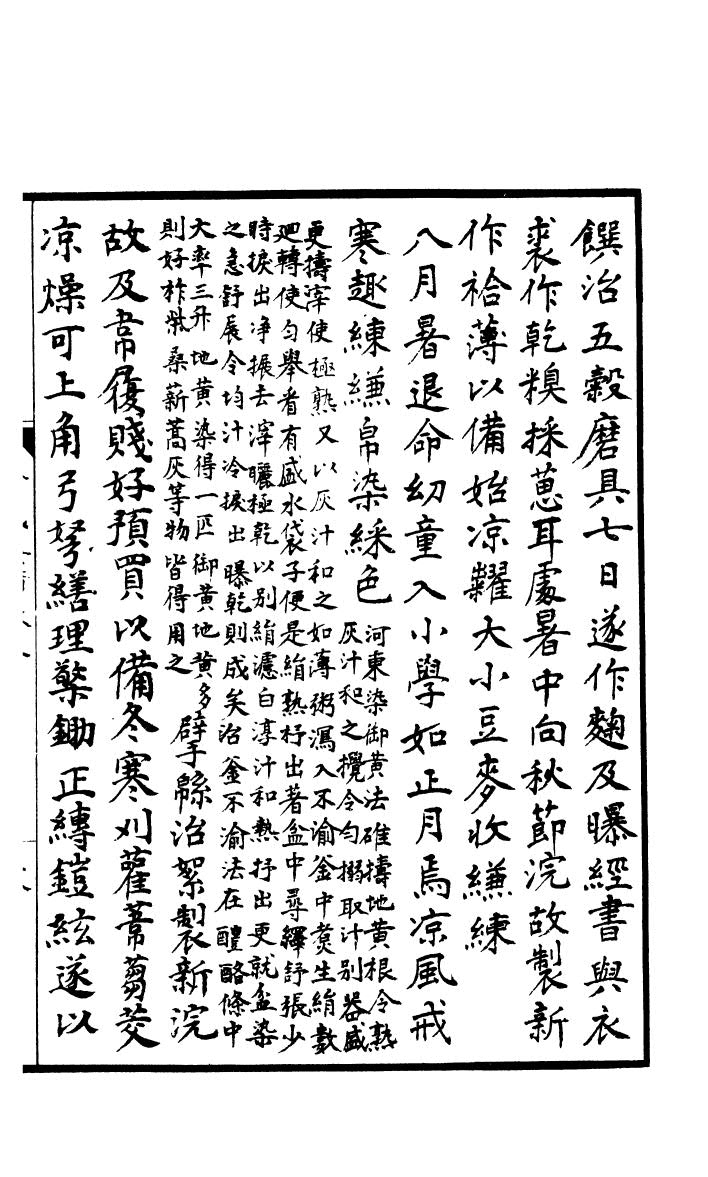 饌治五穀磨具七日遂作麴及曝經書與衣
裘作乾糗採葸耳處暑中向秋節浣故製新
作袷薄以備始凉糶大小豆麥收縑練
八月暑退命幼童入小學如正月焉凉風戒
寒趣練縑帛染綵色
河東染御黄法碓擣地黄根令熟
灰汁和之攪令勻搦取汁別器盛
更擣滓使極熟又以灰汁和之如薄粥瀉入不渝釜中煑生絹數
廻轉使勻舉看有盛水袋子便是絹熟抒出著盆中尋繹舒張少
時捩出净搌去滓曬極乾以別絹濾白淳汁和熱抒出更就盆染
之急舒展令均汁冷捩出曝乾則成矣治釜不渝法在醴酪條中
大率三升地黄染得一匹御黄地黄多
則好柞柴桑薪蒿灰等物皆得用之
擘緜治絮製新浣
故及韋履賤好預買以備冬寒刈雚葦芻茭
凉燥可上角弓弩繕理檠鋤正縳鎧絃遂以